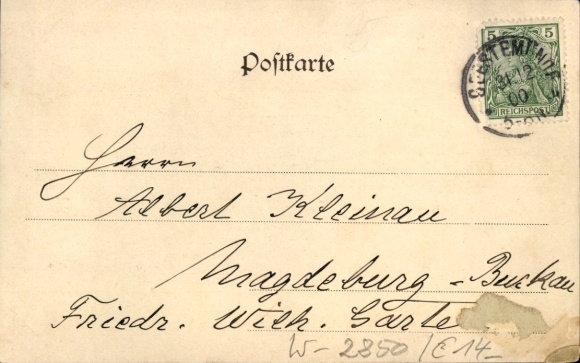 Postkarte
5 5
REICHSPOST
GEESTEMÜNDE
31 12
00
5-6N
Herrn
Albert Kleinau
Magdeburg-Buckau
Friedr. Wilh. Garte
W-2850/E14-